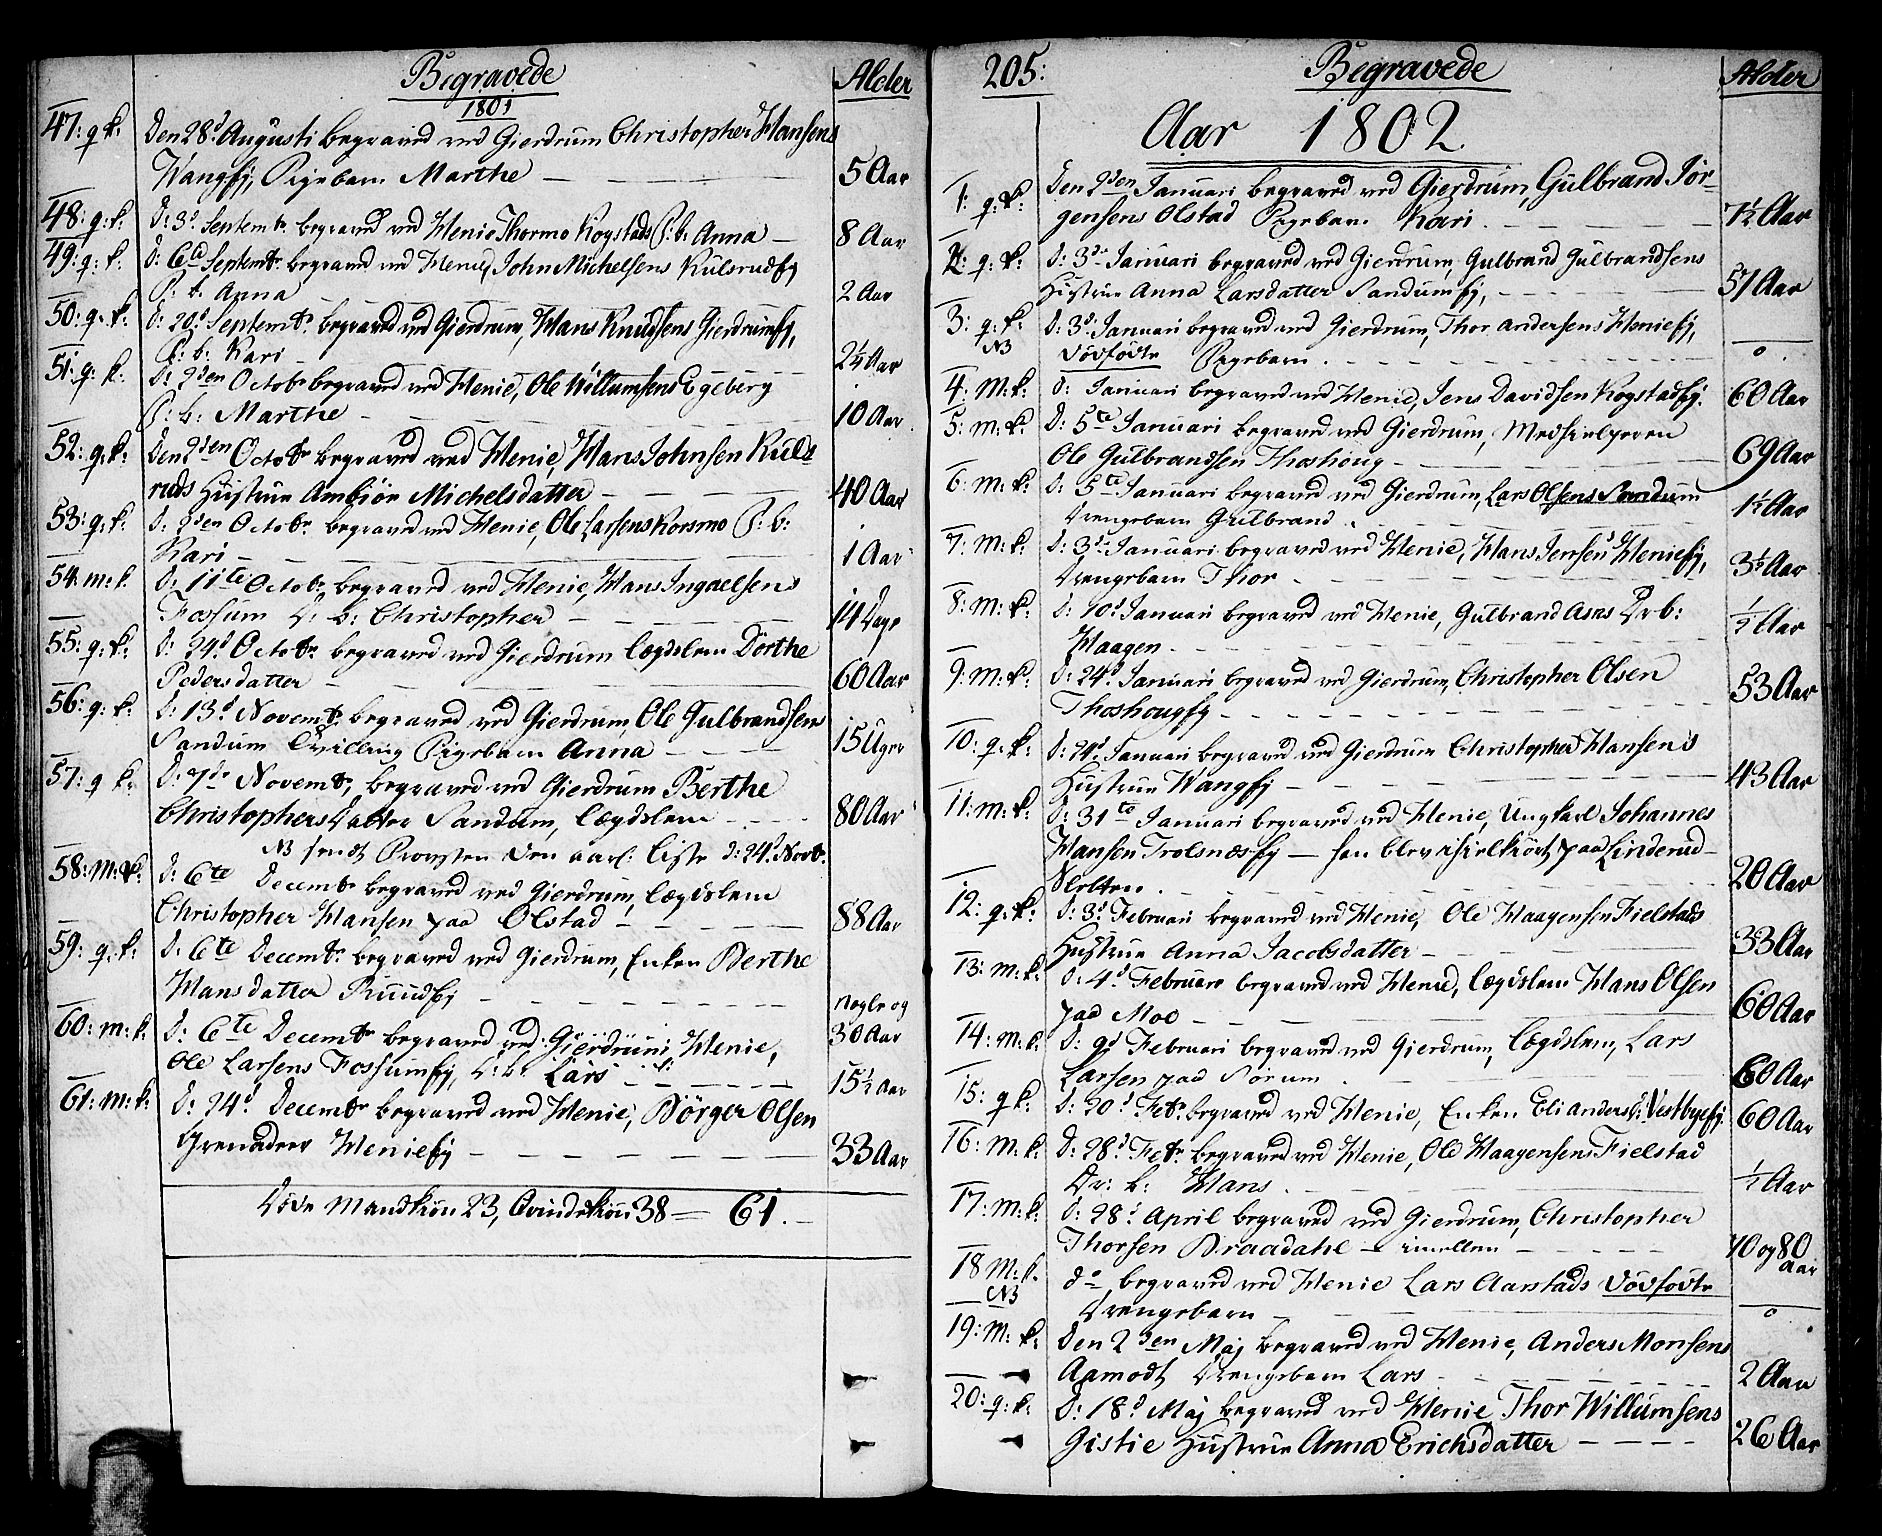 Begravede
1801
Alder
47: q k: Den 28d Augusti begraved ved Gierdrum Christopher Hansens
Wangfj, Pigebarn Marthe — 5 Aar
48: q: k: D: 3d Septembr begraved ved Henie Thormo Kogstads P: b: Anna — 8 Aar
49: q: k: D: 6td Septembr begraved ved Henie, John Michelsens Kulsrudfj
P: b. Anna — 2 Aar
50: q: k: D: 20d Septembr begraved ved Gierdrum, Hans Knudsens Gierdrumfj,
P: b: Kari — 2½ Aar
51: q: k: D: 2den Octobr begraved ved Henie, Ole Willumsens Egeberg
P: b: Marthe — 10 Aar
52: q: k: Den 2den Octobr begraved ved Henie, Hans Johnsen Kuls
ruds Hustrue Ambiør Michelsdatter — 40 Aar
53: q: k: D: 2den Octobr begraved ved Henie, Ole Larsens Korsmo P: b:
Kari — 1 Aar
54: m: k. D: 11te Octobr begraved ved Henie, Hans Ingvelsens
Fossum D: b: Christopher — 14 Dage
55: q: k: D: 24d Octobr begraved ved Gierdrum Lægdslem Dorthe
Pedersdatter — 60 Aar
56: q: k: D: 13d Novembr begraved ved Gierdrum, Ole Gulbrandsens
Sandum Tvilling Pigebarn Anna — 15 Uger
57: q k: D: 7de Novembr begraved ved Gierdrum Berthe
Christophersdatter Sandum, Lægdslem — 80 Aar
NB sendt Provsten den aarl: Liste d: 24d Novbr.
58: m: k: D: 6te Decembr begraved ved Gierdrum, Lægdslem
Christopher Hansen paa Olstad — 88 Aar
59: q: k: D: 6te Decembr begraved ved Gierdrum, Enken Berthe
Hansdatter Ruudfj — Nogle og
30 Aar
60: m: k: D: 6te Decembr begraved ved Gierdrum, Henie,
Ole Larsens Fossumfj, D: b: Lars — 15½ Aar
61: m: k: D: 24d Decembr begraved ved Henie, Børger Olsen
Grenadeer Heniefj — 33 Aar
Døde Mandkiøn 23, Qvindekiøn 38 = 61.
205:
Begravede
Alder
Aar 1802
1: q: k: Den 2den Januari begraved ved Gierdrum, Gulbrand Jør-
gensens Olstad Pigebarn Kari — 7½ Aar
2: q: k: D: 3de Januari begraved ved Gierdrum, Gulbrand Gulbrandsens
Hustrue Anna Larsdatter Sandumfj, — 57 Aar
3: q: k: D: 3d Januari begraved ved Gierdrum, Thor Andersens Heniefj,
NB dødfødte Pigebarn — 0.
4: m: k: D: Januari begraved ved Henie, Jens Davidsen Kogstadfj. 60 Aar
5: m: k: D: 5te Januari begraved ved Gierdrum, Medhielperen
Ole Gulbrandsen Thoshoug — 69 Aar
6: m: k: D: 5te Januari begraved ved Gierdrum, Lars Olsens Sandum
Drengebarn Gulbrand — 1½ Aar
7: m: k: D: 3d Januari begraved ved Henie, Hans Jensens Heniefj,
Drengebarn Thor — 3½ Aar
8: m: k: D: 10d Januari begraved ved Henie, Gulbrand Ases Dr b:
Haagen — ½ Aar
9: m: k: D: 24d Januari begraved ved Gierdrum, Christopher Olsen
Thoshougfj — 53 Aar
10: q: k: D: 24d Januari begraved ved Gierdrum Christopher Hansens
Hustrue Wangfj — 43 Aar
11: m: k: D: 31te Januari begraved ved Henie, Ungkarl Johannes
Hansen Trolsnæsfj — han blev ihielkiørt paa Linderud-
Sletten. — 20 Aar
12: q: k: D: 3d Februari begraved ved Henie, Ole Haagensen Fielstads
Hustrue Anna Jacobsdatter — 33 Aar
13: m: k: D: 4d Februari begraved ved Henie, Lægdslem Hans Olsen
paa Moe — 60 Aar
14: m: k: D: 9d Februari begraved ved Gierdrum, Lægdslem, Lars
Larsen paa Sørum — 60 Aar
15: q k: D: 20d Febr. begraved ved Henie, Enken Eli Andersd: Vestbyefj. 60 Aar
16: m: k: D: 28d Febr. begraved ved Henie, Ole Haagensens Fielstad
Dr: b: Hans — ½ Aar
17: m: k: D: 28d April begraved ved Gierdrum, Christopher
Thorsen Braadahl — imellem — 70 og 80
Aar
18 m: k. do, begraved ved Henie Lars Aarstads dødfødte
NB Drengebarn — 0
19: m: k: Den 2den Maj begraved ved Henie, Anders Monsens
Aamodt Drengebarn Lars — 2 Aar
20: q: k: D: 18d Maj begraved ved Henie Thor Willumsens
Gistie Hustrue Anna Erichsdatter — 26 Aar